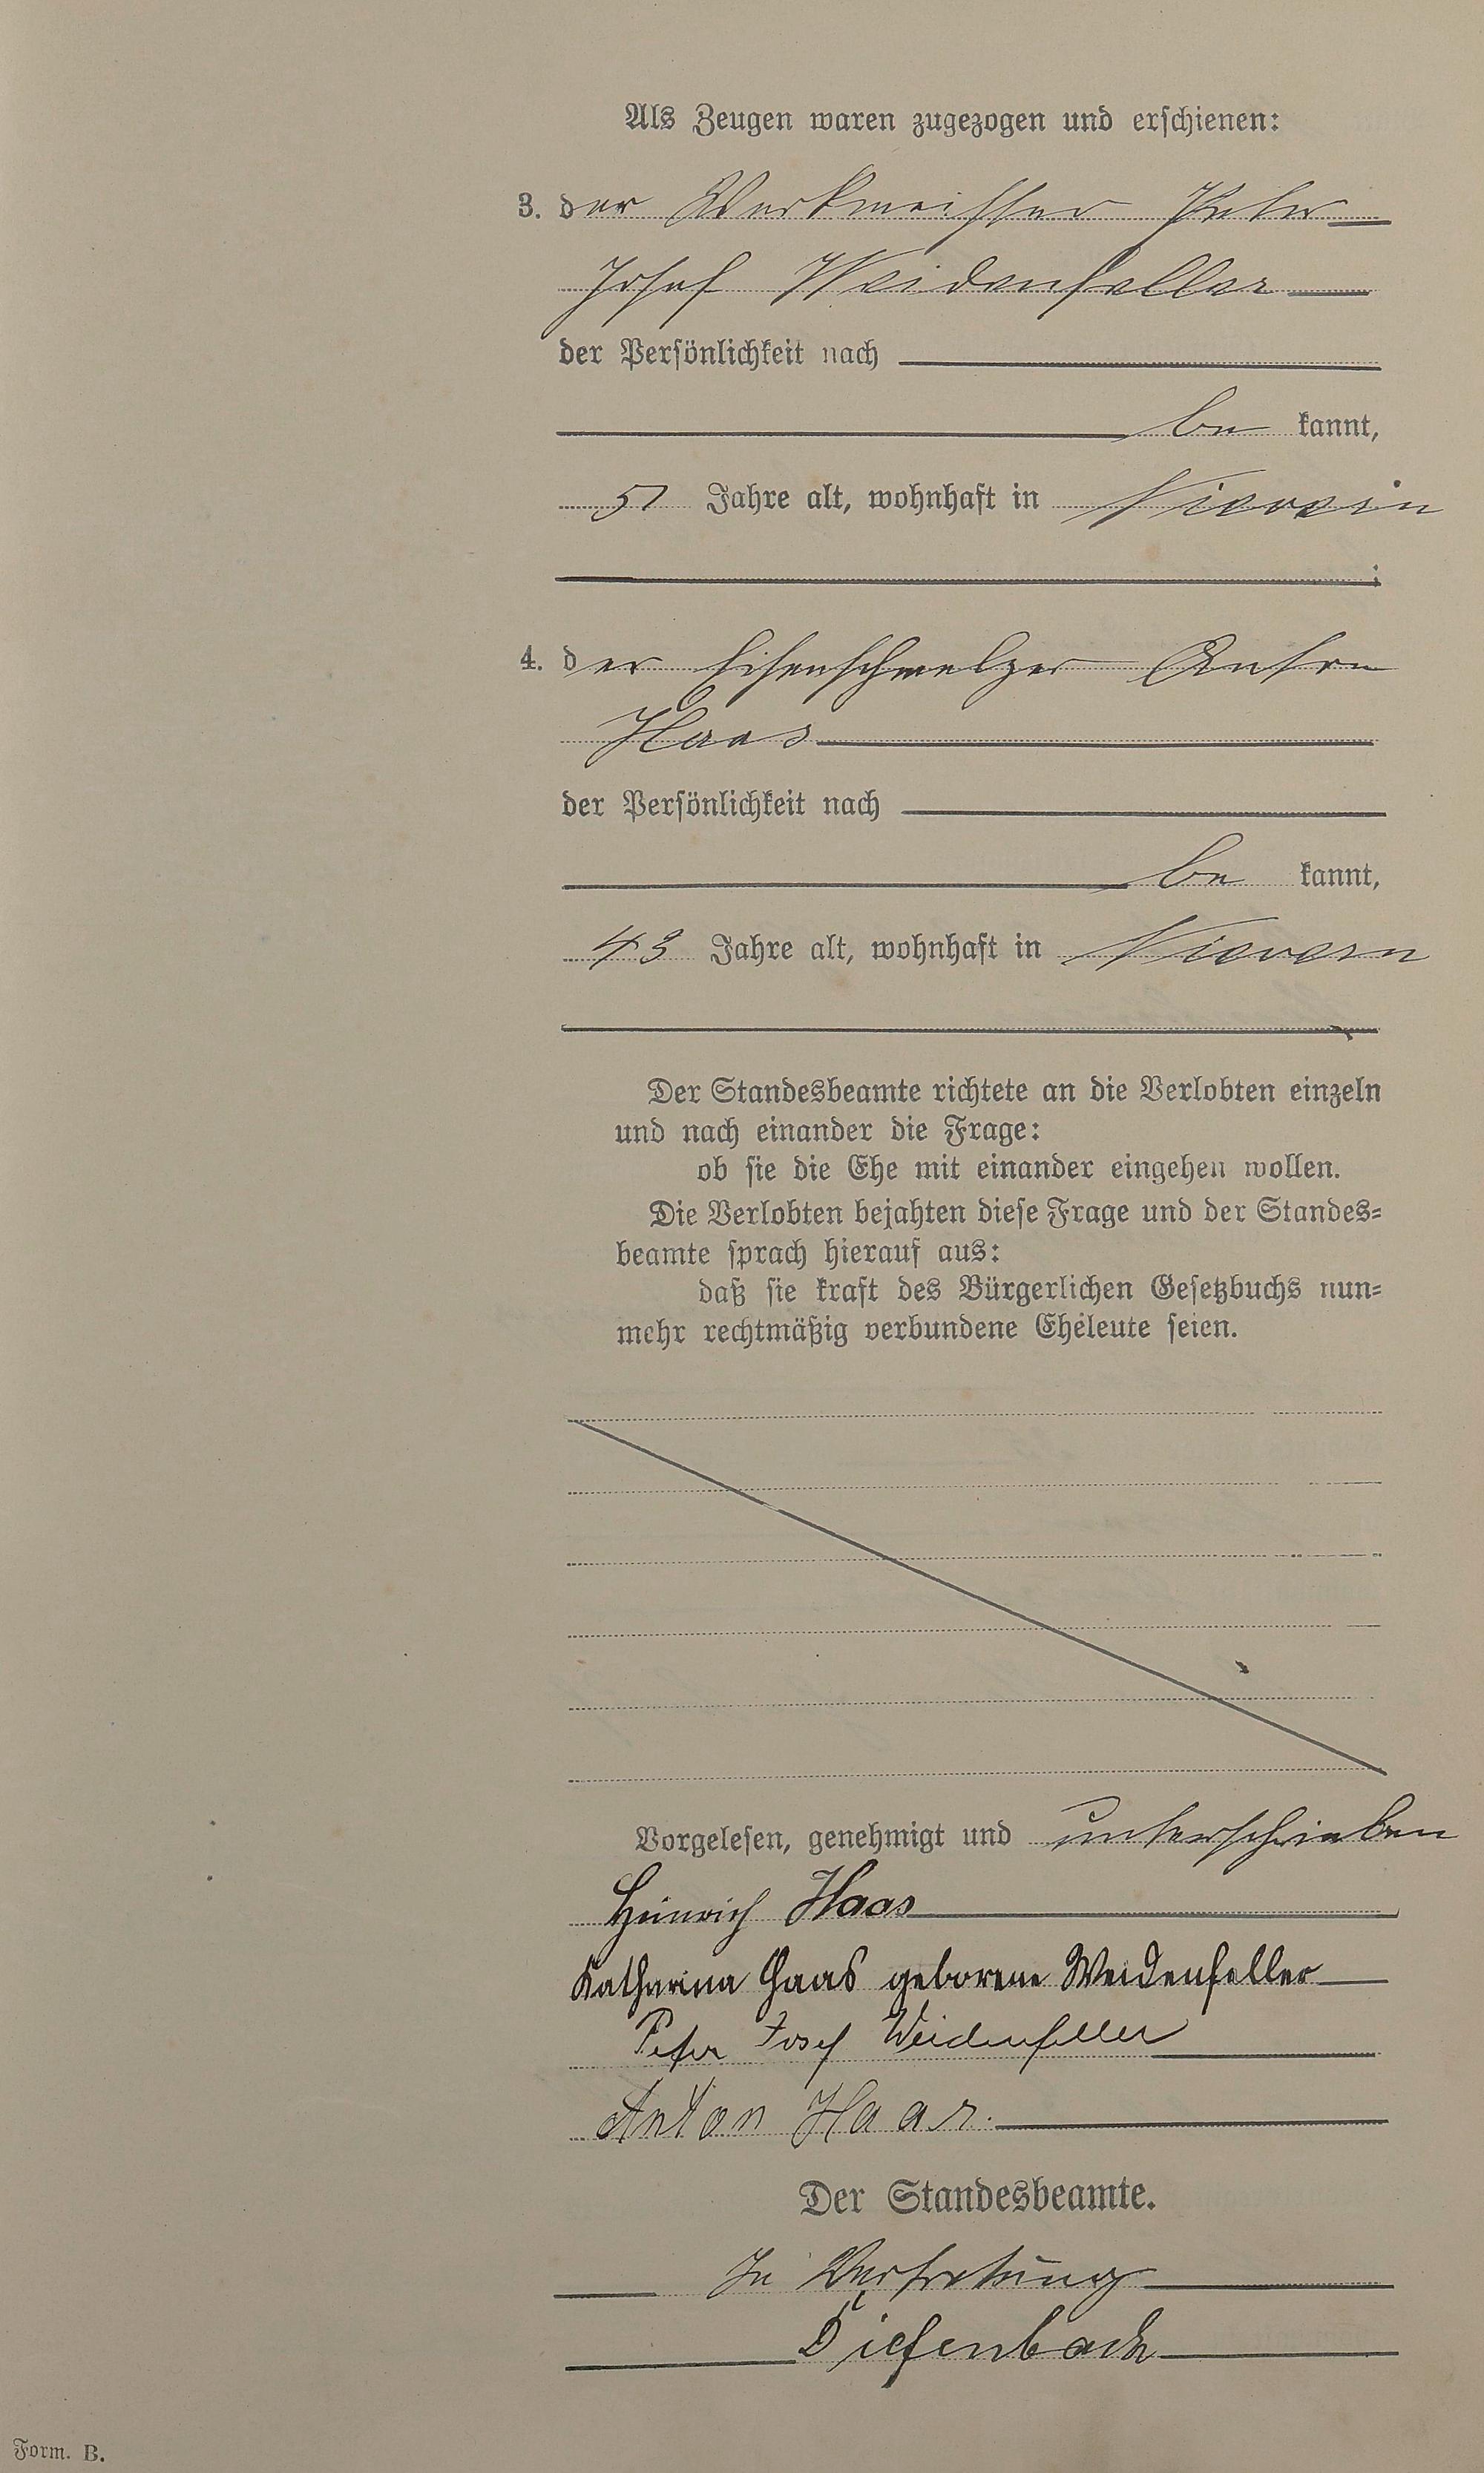 Als Zeugen waren zugezogen und erschienen:
3. der Werkmeister Peter
Josef Weidenfeller
der Persönlichkeit nach
be kannt,
51 Jahre alt, wohnhaft in Nievern
;
4. der Eisenschmelzer Anton
Haas
der Persönlichkeit nach
be kannt,
43 Jahre alt, wohnhaft in Nievern
Der Standesbeamte richtete an die Verlobten einzeln
und nach einander die Frage:
ob sie die Ehe mit einander eingehen wollen.
Die Verlobten bejahten diese Frage und der Standes-
beamte sprach hierauf aus:
daß sie kraft des Bürgerlichen Gesetzbuchs nun-
mehr rechtmäßig verbundene Eheleute seien.
Vorgelesen, genehmigt und unterschrieben
Heinrich Haas
Katharina Haas geborene Weidenfeller
Peter Josef Weidenfeller
Anton Haas.
Der Standesbeamte.
In Vertretung
Diefenbach
Form. B.